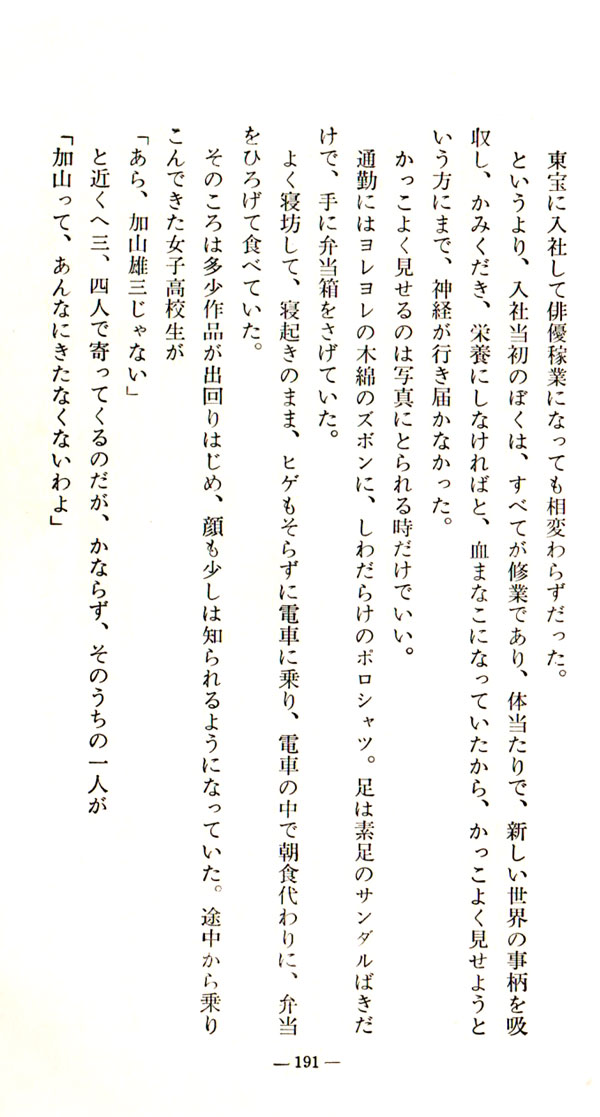 東宝に入社して俳優稼業になっても相変わらずだった。
というより、入社当初のぼくは、すべてが修業であり、体当たりで、新しい世界の事柄を吸
収し、かみくだき、栄養にしなければと、血まなこになっていたから、かっこよく見せようと
いう方にまで、神経が行き届かなかった。
かっこよく見せるのは写真にとられる時だけでいい。
通勤にはヨレヨレの木綿のズボンに、しわだらけのボロシャツ。足は素足のサンダルばきだ
けで、手に弁当箱をさげていた。
よく寝坊して、寝起きのまま、ヒゲもそらずに電車に乗り、電車の中で朝食代わりに、弁当
をひろげて食べていた。
そのころは多少作品が出回りはじめ、顔も少しは知られるようになっていた。途中から乗り
こんできた女子高校生が
「あら、加山雄三じゃない」
と近くへ三、四人で寄ってくるのだが、かならず、そのうちの一人が
「加山って、あんなにきたなくないわよ」
— 191 —